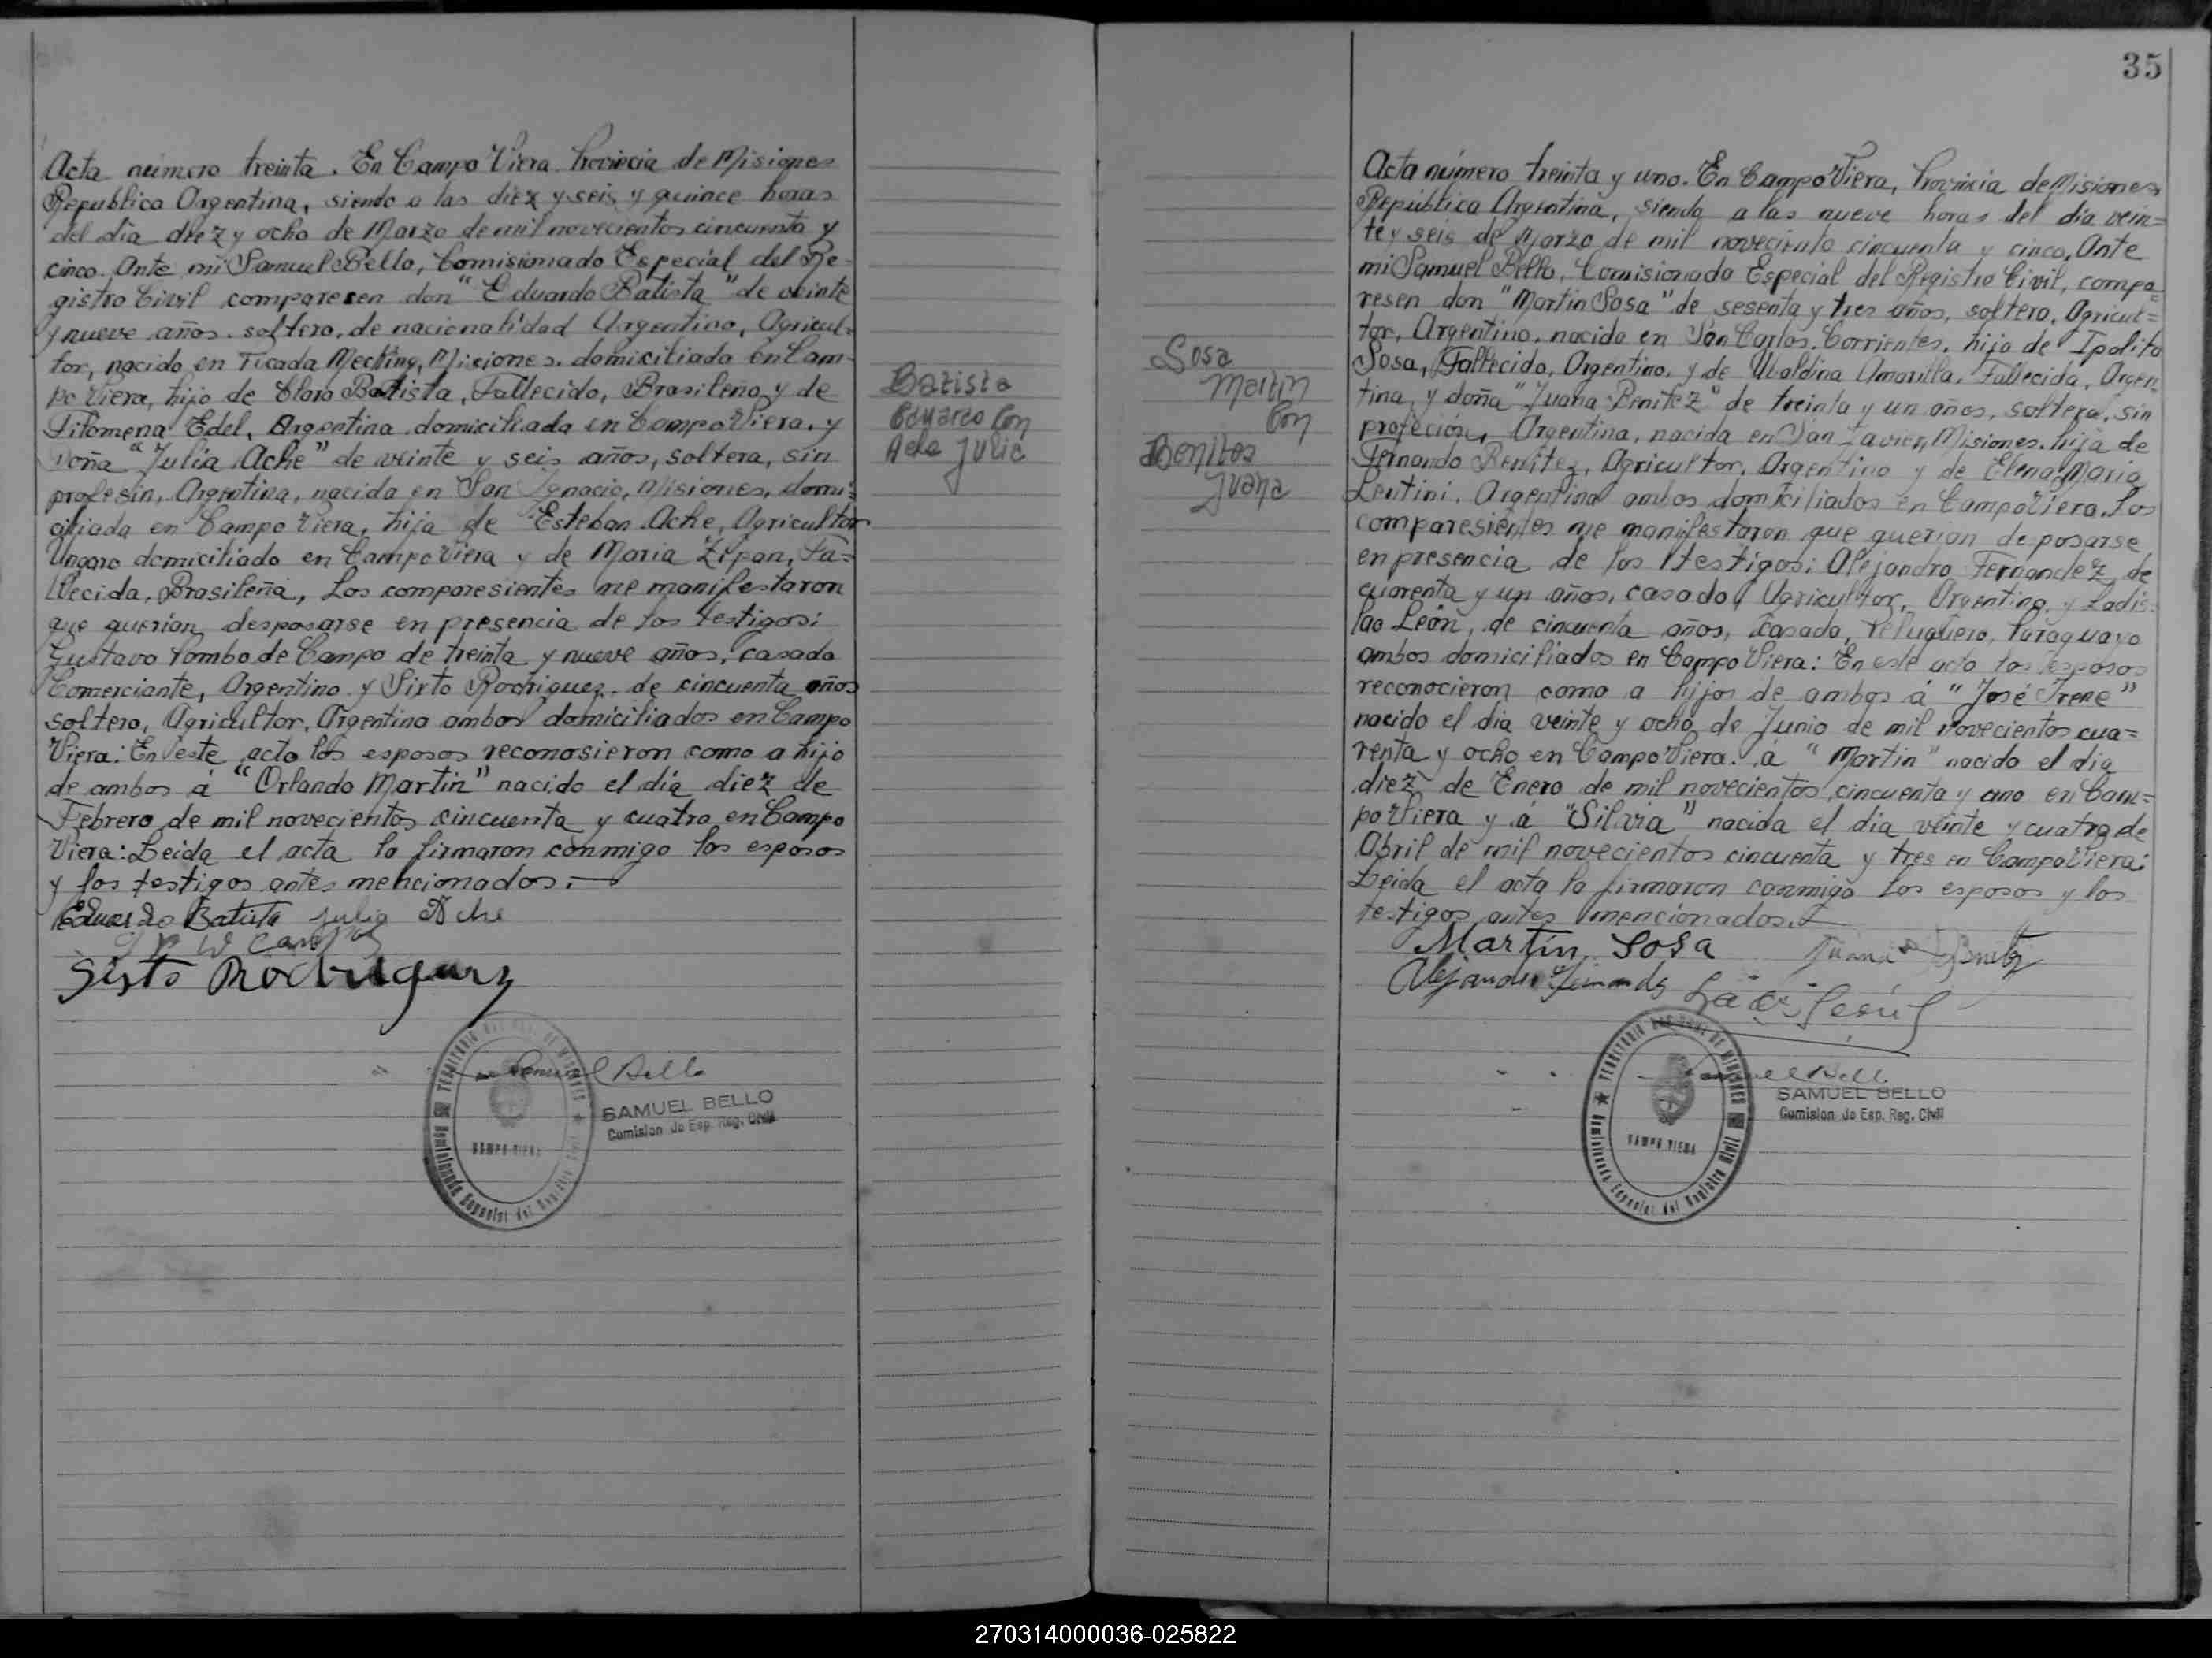 Acta número treinta. En Campo Viera Provincia de Misiones
República Argentina, siendo a las diez y seis y quince horas
del día diez y ocho de Marzo de mil novecientos cincuenta y
cinco. Ante mi Samuel Bello, Comisionado Especial del Re-
gistro Civil comparecen don "Eduardo Batista" de veinte
y nueve años. soltero, de nacionalidad Argentino, Agricul-
tor, nacido en Picada Mecking, Misiones. domiciliado en Cam-
po Viera, hijo de Claro Batista, Fallecido, Brasileño y de
Filomena Edel, Argentina domiciliada en Campo Viera, y
doña "Julia Ache" de veinte y seis años, soltera, sin
profesin, Argentina, nacida en San Ignacio, Misiones, domi=
ciliada en Campo Viera, hija de Esteban Ache, Agricultor
Ungaro domiciliado en Campo Viera y de Maria Zepan, Fa=
llecida, Brasileña, Los comparesientes me manifestaron
que querian desposarse en presencia de los testigos:
Gustavo Pombo de Campo de treinta y nueve años, casado
Comerciante, Argentino y Sixto Rodriguez de cincuenta años
soltero, Agricultor, Argentino ambos domiciliados en Campo
Viera: En este acto los esposos reconosieron como a hijo
de ambos á "Orlando Martin" nacido el día diez de
Febrero de mil novecientos cincuenta y cuatro en Campo
Viera: Leida el acta la firmaron conmigo los esposos
y los testigos antes mencionados.—
Eduardo Batista Julia Ache
Sisto Rodriguez
Samuel Bello
SAMUEL BELLO
Comision do Esp. Reg. Civil
TERRITORIO NACIONAL DE MISIONES
CAMPO VIERA
Comisionado Especial del Registro Civil
Batista
Eduardo Con
Ache Julia
35
Sosa
Martin
Con
Benites
Juana
Acta número treinta y uno. En Campo Viera, Provincia de Misiones
República Argentina, siendo a las nueve horas del día vein=
te y seis de Marzo de mil noveciento cincuenta y cinco, Ante
mi Samuel Bello, Comisionado Especial del Registro Civil, compa=
resen don "Martin Sosa" de sesenta y tres años, soltero, Agricul=
tor, Argentino, nacido en San Carlos. Corrientes. hijo de Ipolito
Sosa, Fallecido, Argentino. y de Ubaldina Amarilla, Fallecida, Argen
tina, y doña "Juana Benitez" de treinta y un años, soltera, sin
profeción, Argentina, nacida en San Javier, Misiones. hija de
Fernando Benitez, Agricultor, Argentino y de Elena Maria
Lentini. Argentina ambos domiciliados en Campo Viera. Los
comparesientes me manifestaron que querian deposarse
en presencia de los testigos: Alejandro Fernandez, de
cuarenta y un años, casado, Agricultor, Argentino y Ladis=
lao León, de cincuenta años, casado, Peluquero, Paraguayo
ambos domiciliados en Campo Viera: En este acto los esposos
reconocieron como a hijos de ambos á "José Irene"
nacido el dia veinte y ocho de Junio de mil novecientos cua=
renta y ocho en Campo Viera. á "Martin" nacido el dia
diez de Enero de mil novecientos cincuenta y uno en Cam=
po Viera y á "Silvia" nacida el dia veinte y cuatro de
Abril de mil novecientos cincuenta y tres en Campo Viera:
Leida el acta la firmaron conmigo los esposos y los
testigos antes mencionados.
Martín Sosa Juana Benitez
Samuel Bello
SAMUEL BELLO
Comision do Esp. Reg. Civil
TERRITORIO NACIONAL DE MISIONES
CAMPO VIERA
Comisionado Especial del Registro Civil
270314000036-025822